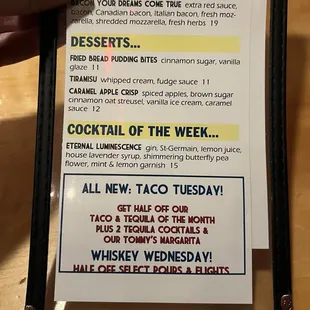 BACON, YOUR DREAMS COME TRUE extra red sauce,
bacon, Canadian bacon, Italian bacon, fresh moz-
zarella, shredded mozzarella, fresh herbs 19
DESSERTS...
FRIED BREAD PUDDING BITES cinnamon sugar, vanilla
glaze 11
TIRAMISU whipped cream, fudge sauce 11
CARAMEL APPLE CRISP spiced apples, brown sugar
cinnamon oat streusel, vanilla ice cream, caramel
sauce 12
COCKTAIL OF THE WEEK...
ETERNAL LUMINESCENCE gin, St-Germain, lemon juice,
house lavender syrup, shimmering butterfly pea
flower, mint & lemon garnish 15
ALL NEW: TACO TUESDAY!
GET HALF OFF OUR
TACO & TEQUILA OF THE MONTH
PLUS 2 TEQUILA COCKTAILS &
OUR TOMMY'S MARGARITA
WHISKEY WEDNESDAY!
HALF OFF SELECT POURS & FLIGHTS